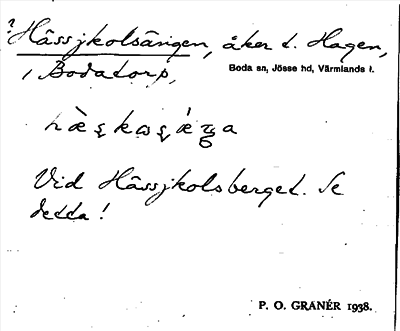 ? Hässjkolsängen, åker t. Hagen,
i Bodatorp,
Boda sn, Jösse hd, Värmlands l.
Vid Hässjkolsberget. Se
detta!
P. O. GRANÉR 1938.